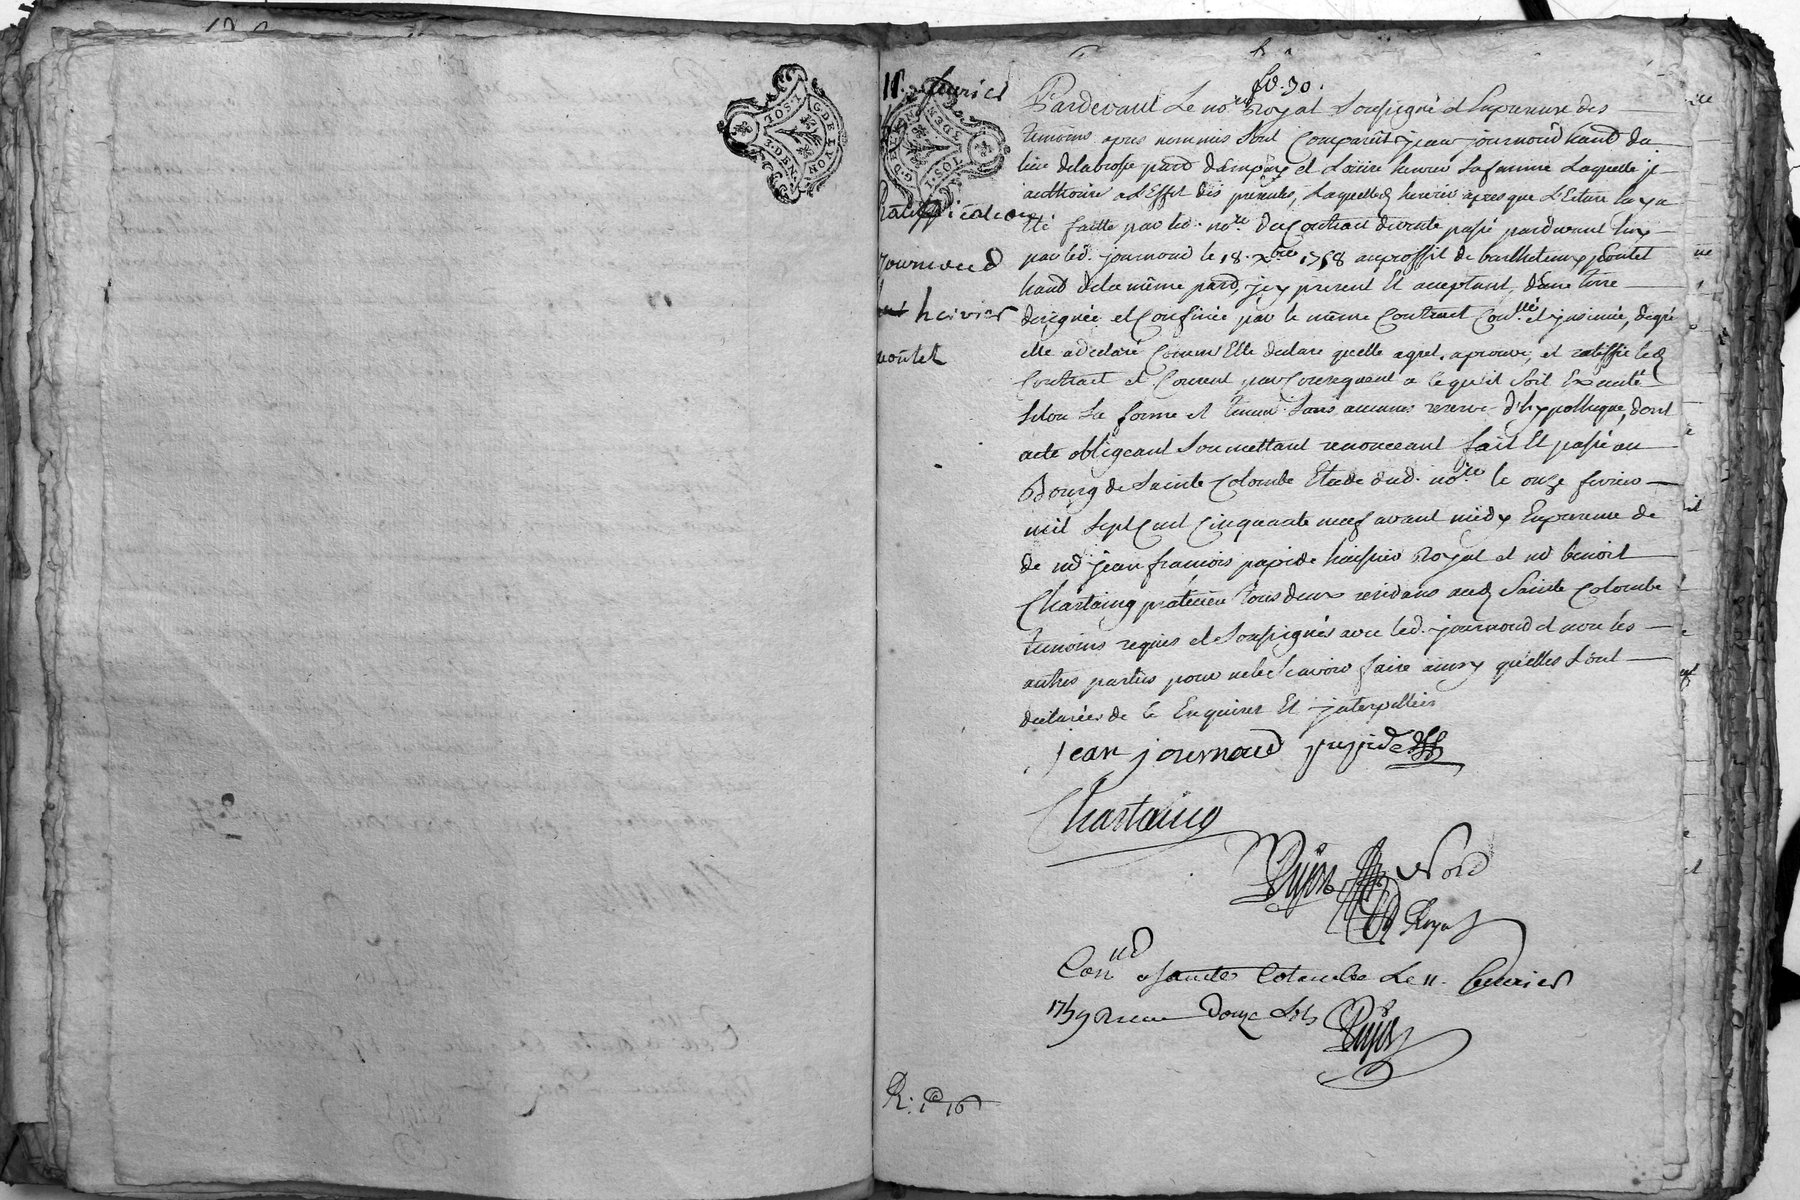 G. DE LYON
1. SOL. 3. DEN.
11. fevrier
Ratiffication
journoud
heivier
pontet
fo. 30.
Pardevant Le nore Royal soussigné et En presence des
temoins apres nommés sont comparûs jean journoud habt du
lieu de labrosse parr d'ampûy et Louise heivier sa femme Laquelle il
authorise a L'effet des presentes, Laquelled heivier apres que L'Ecture luy a
été faitte par led. nore du Contrat de vente passé pardevant luy
par led. journoud le 18. xbre 1758 au proffit de barthelemy pontet
habt de la même parr, icy present Et acceptant, d'une terre
designée et Confinée par le même Contrat Conllé et insinué, de gré
elle a declaré Comme Elle declare qu'elle agrée, aprouve, et ratiffie led
Contrat et Consent par Consequent a ce qu'il soit Executé
selon sa forme et teneur sans aucune reserve d'hypotheque, dont
acte obligeant soumettant renonceant fait Et passé au
Bourg de Sainte Colombe Etude dud. nore le onze fevrier
mil sept Cent Cinquante neuf avant midy En presence de
de mr jean francois papide huissier Royal et mr benoit
Chastaing praticien tous deux residans aud Sainte Colombe
temoins requis et soussignés avec led. journoud et non les
autres parties pour ne le scavoir faire ainsy qu'elles sont
declarées de ce Enquises Et interpellées
jean journoud papide
Chastaing
Dujon Nore
Royal
Conllé a sainte Colombe Le 11. fevrier
1759 Receu Douze sols Dujon